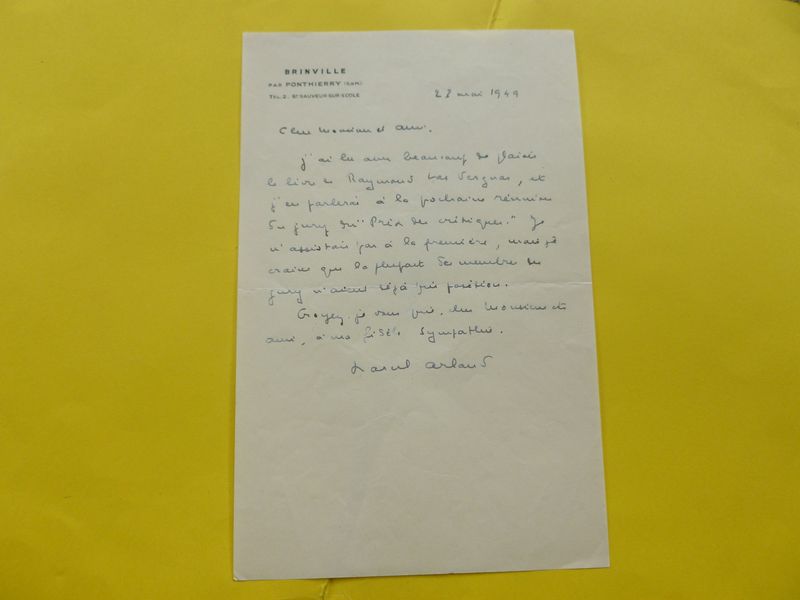 BRINVILLE
PAR PONTHIERRY (S&M)
TEL. 2. ST SAUVEUR-SUR-ECOLE
23 mai 1949
Cher Monsieur et ami,
j'ai lu avec beaucoup de plaisir
le livre de Raymond Las Vergnas, et
j'en parlerai à la prochaine réunion
du jury du "Prix des critiques." Je
n'assistais pas à la première, mais je
crains que la plupart des membres du
jury n'aient déjà pris position.
Croyez, je vous prie, cher Monsieur et
ami, à ma fidèle sympathie.
Marcel Arland